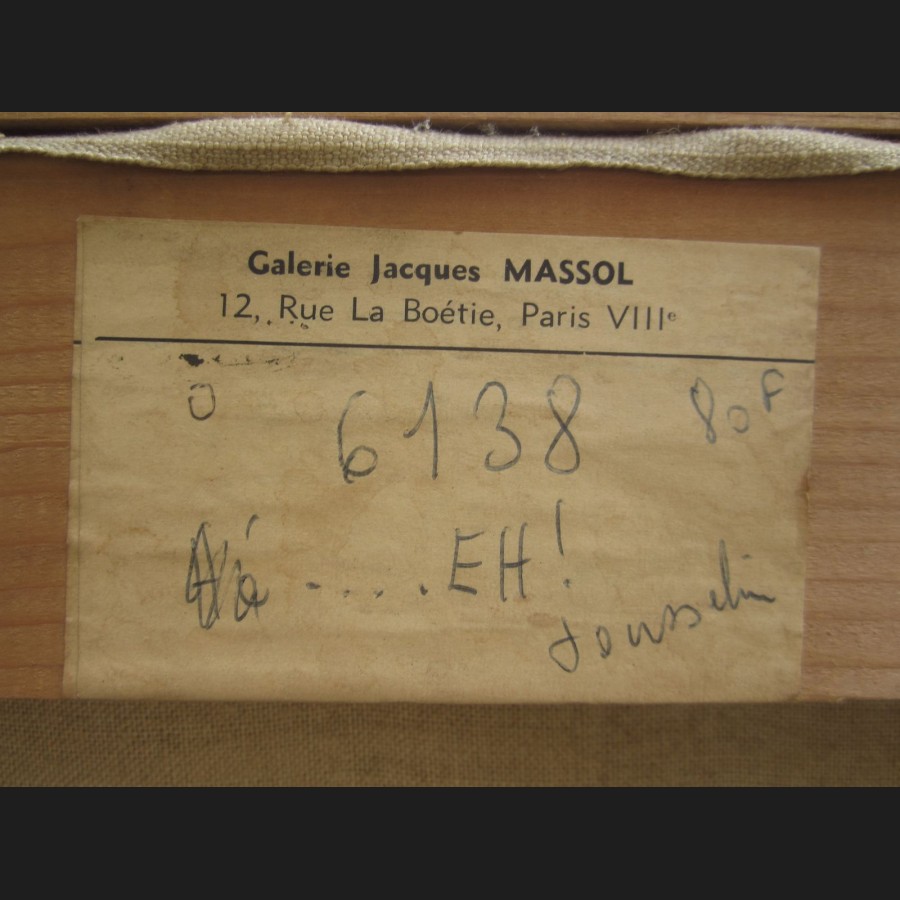 Galerie Jacques MASSOL
12, Rue La Boétie, Paris VIIIe
0 6138 80F
.... EH!